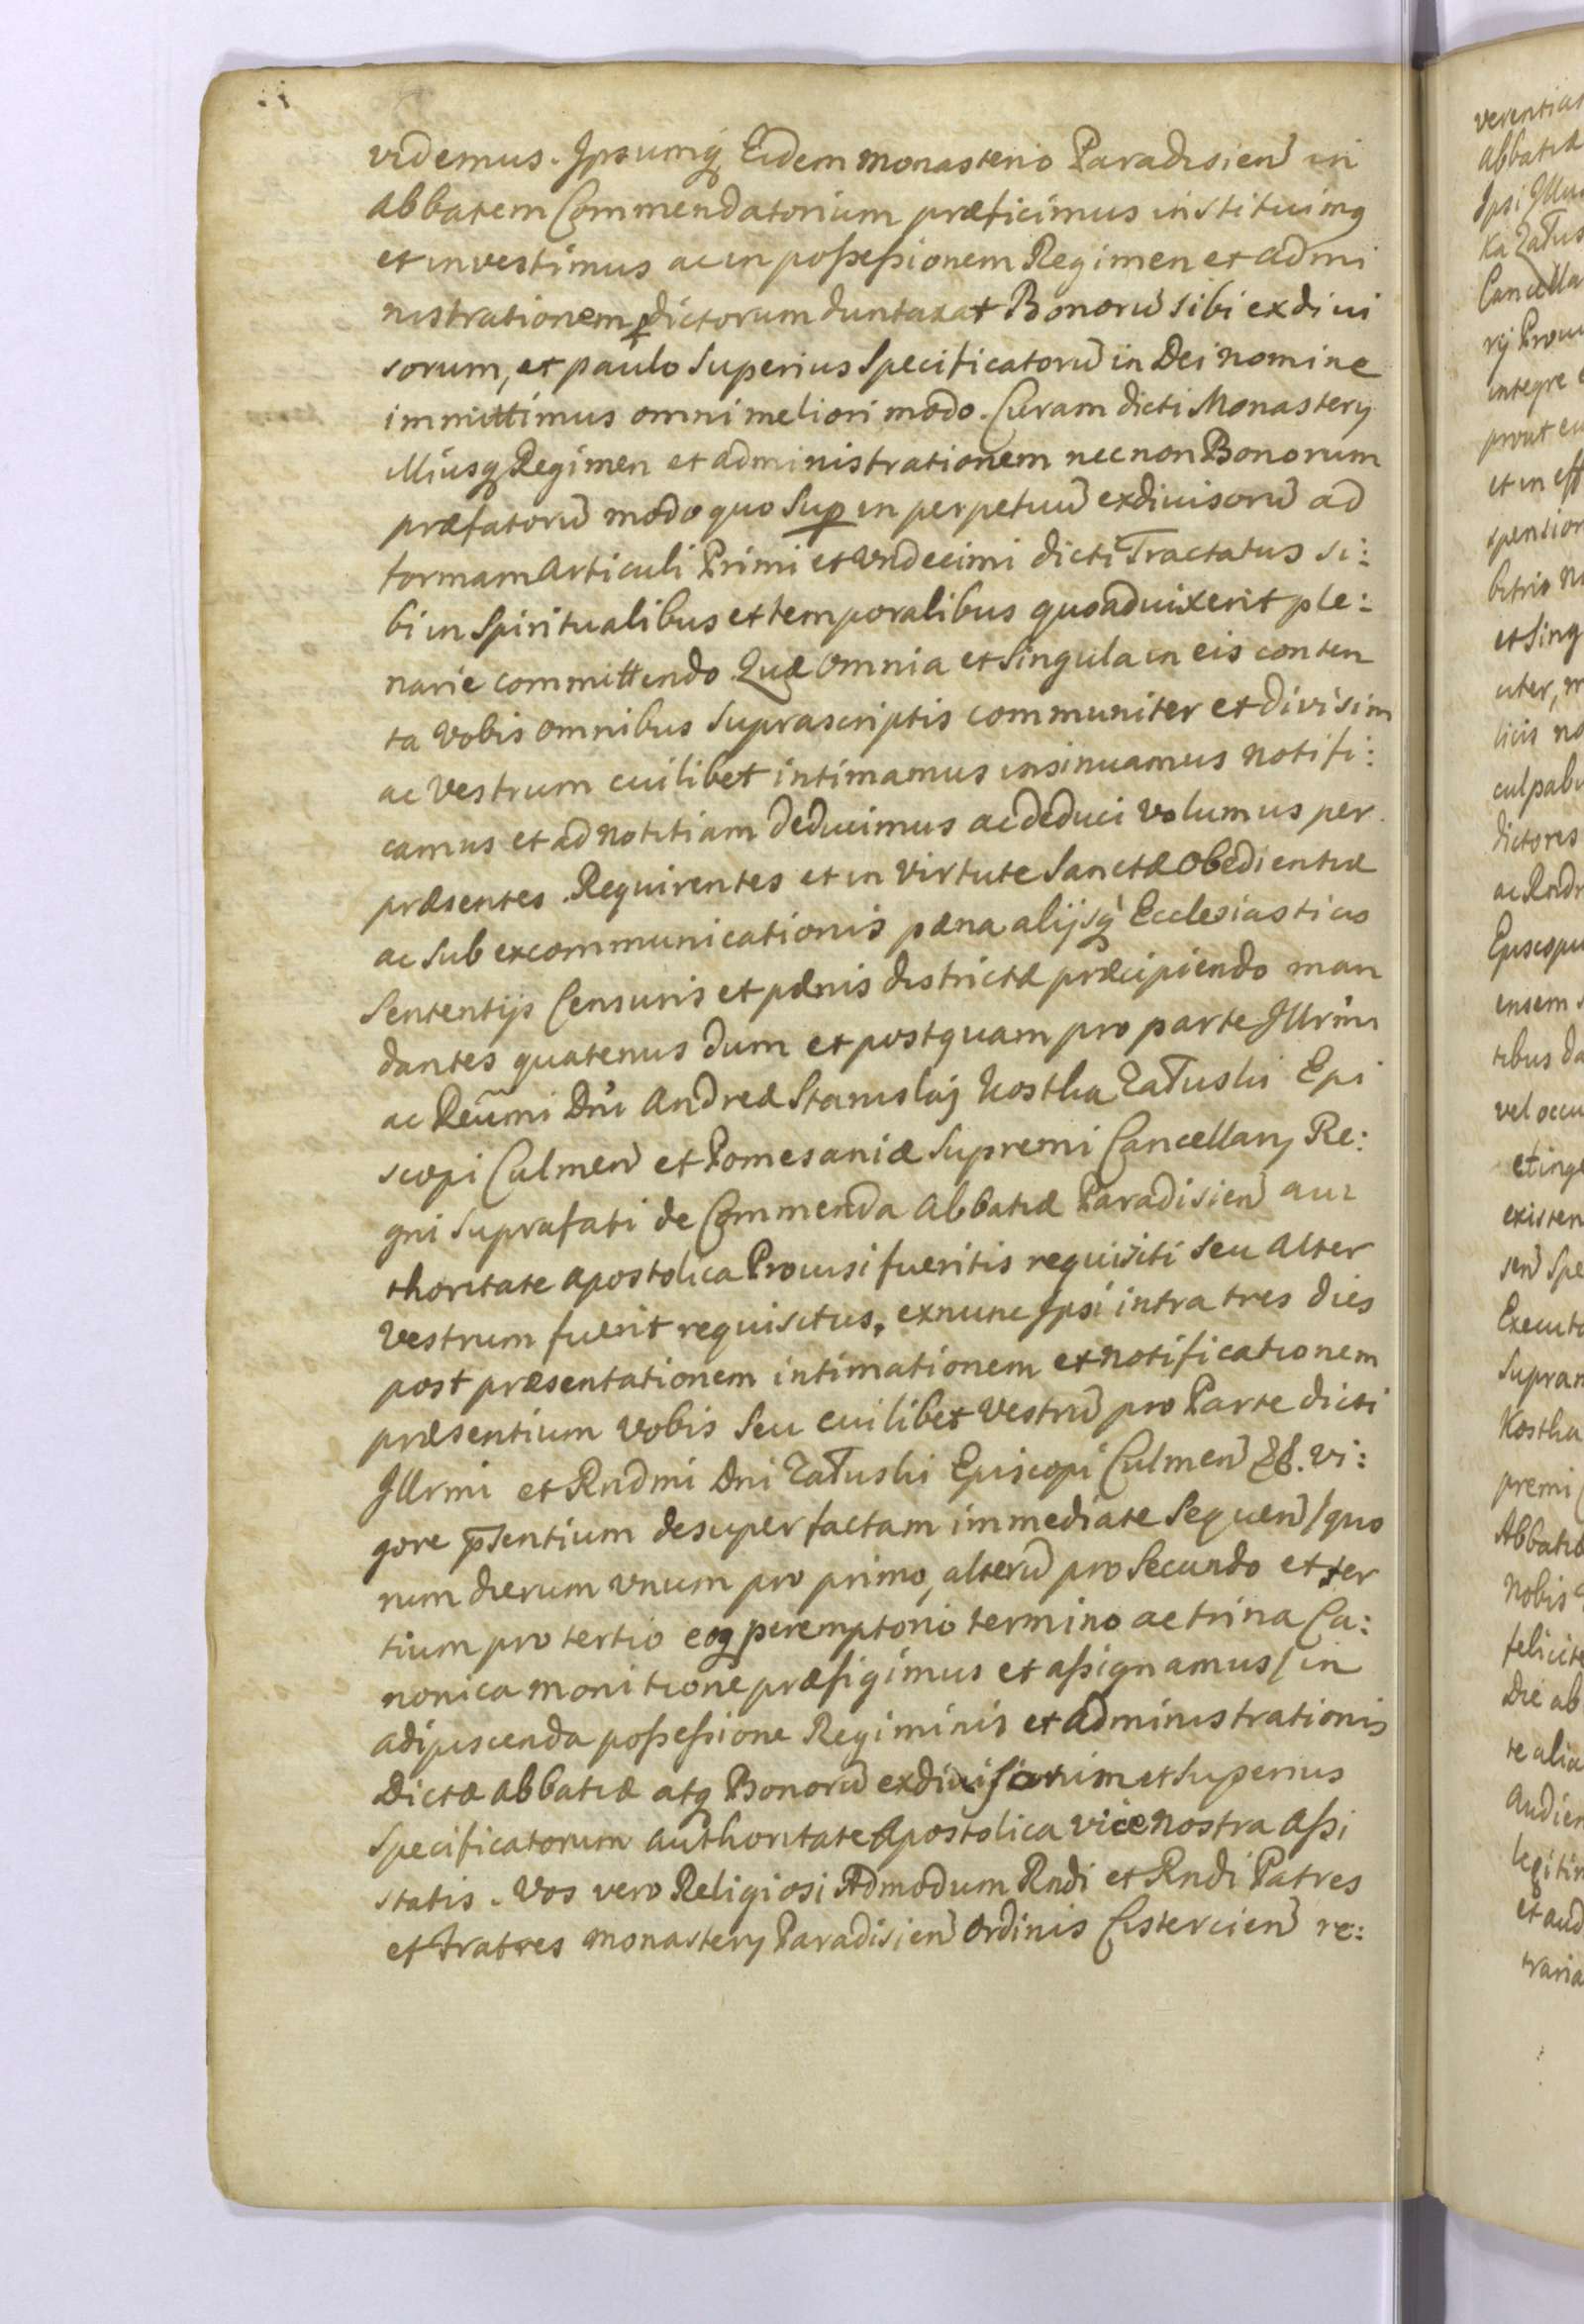 videmus. Ipsumq Eidem monasterio Paradisien in
abbatem Commendatorium præficimus instituimq
et investimus ac in possessionem Regimen et admi
nistrationem pdictorum duntaxat Bonorū sibi exdivi
sorum, et paulo Superius Specificatorū in Dei nomine
immittimus omni meliori modo. Curam dicti Monastery
illiusq Regimen et administrationem necnon Bonorum
præfatorū modo quo Sup in perpetuū exdivisorū ad
formam Articuli Primi et Vndecimi dicti Tractatus si:
bi in Spiritualibus et temporalibus quoadvixerit ple:
narie committendo. Quæ omnia et Singula in eis conten
ta Vobis omnibus Suprascriptis communiter et divisim
ac Vestrum cuilibet intimamus insinuamus notifi:
camus et ad notitiam deducimus ac deduci volumus per
præsentes. Requirentes et in virtute Sanctæ Obedientiæ
ac Sub excommunicationis pæna alijsq Ecclesiasticis
Sententijs Censuris et pænis districtæ præcipiendo man
dantes quatenus dum et postquam pro parte Illrmi
ac Reūmi Dni Andreæ Stanislaj Kostka Załuski Epi
scopi Culmen et Pomesaniæ Supremi Cancellarij Re:
gni Suprafati de Commenda Abbatiæ Paradisien au:
thoritate Apostolica Provisi fueritis requisiti Seu Alter
Vestrum fuerit requisitus, exnunc Ipsi intra tres dies
post præsentationem intimationem et notificationem
præsentium Vobis Seu cuilibet Vestrū pro Parte dicti
Illrmi et Rndmi Dni Załuski Episcopi Culmen &. vi:
gore psentium desuper factam immediate Sequen / quo
rum dierum vnum pro primo, alterū pro Secundo et ter
tium pro tertio eoq peremptorio termino ac trina Ca:
nonica monitione præfigimus et assignamus / in
adipiscenda possessione Regiminis et administrationis
Dictæ abbatiæ atq Bonorū exdivisorum et Superius
Specificatorum authoritate Apostolica vice nostra Assi
statis. Vos vero Religiosi Admodum Rndi et Rndi Patres
et Fratres monastery Paradisien Ordinis Cistercien re: